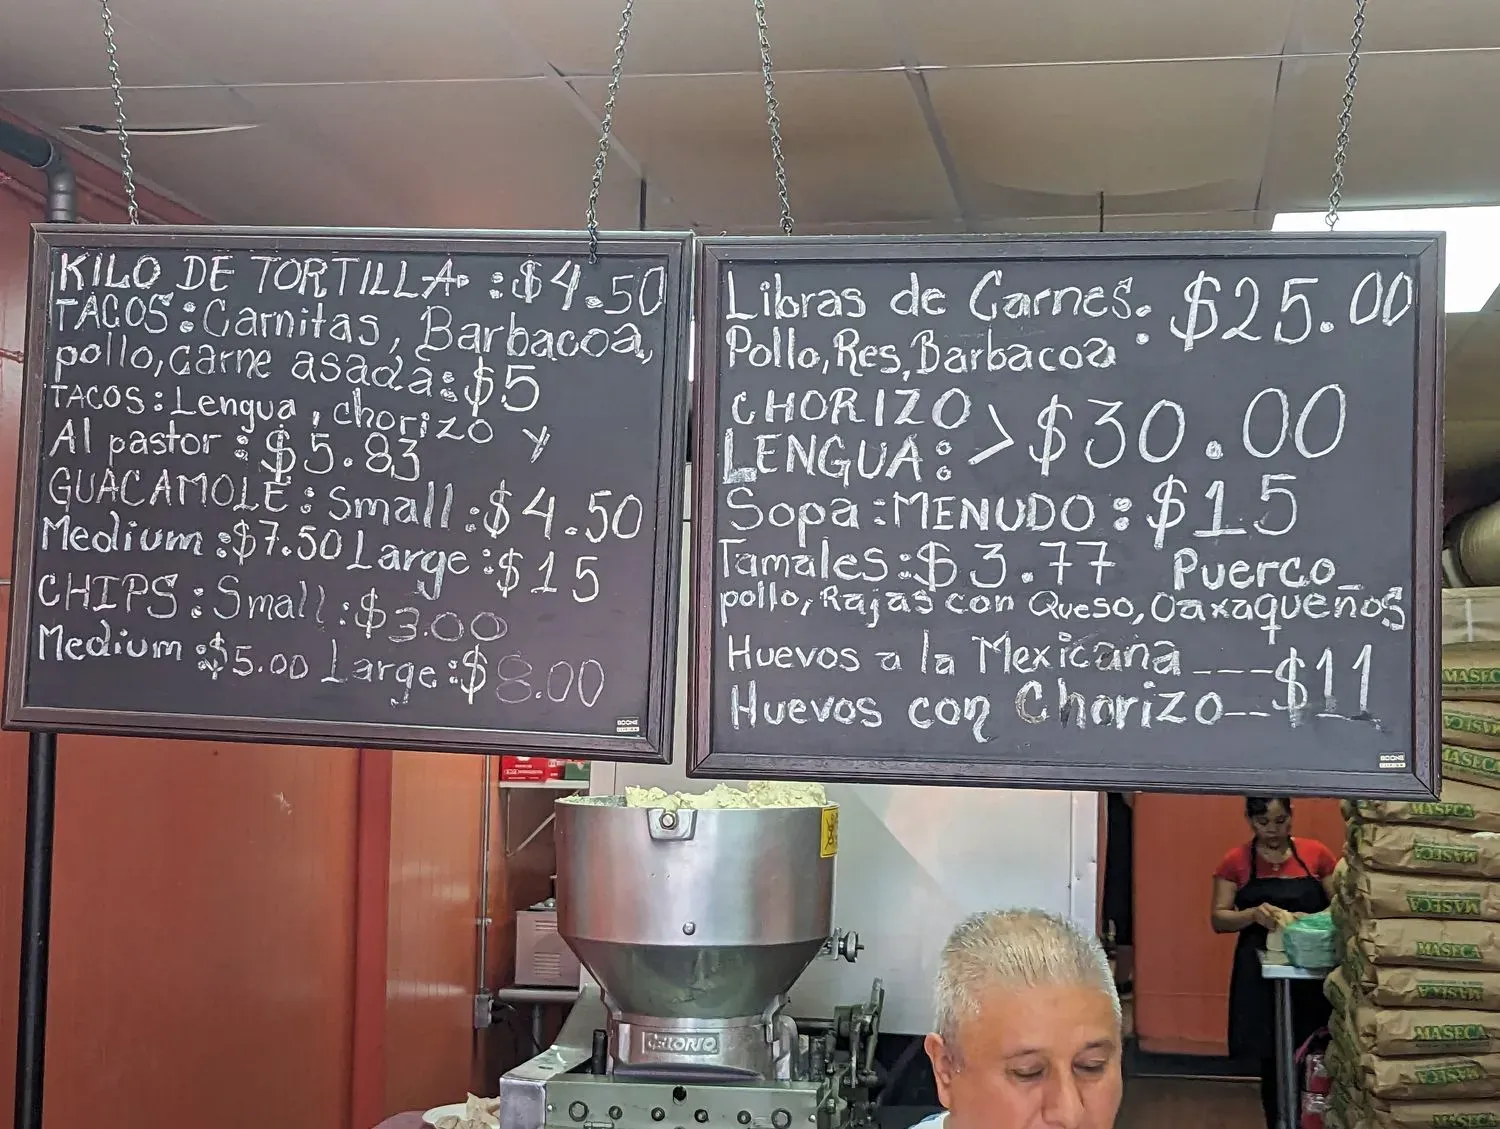 KILO DE TORTILLA : $4.50
TACOS: Carnitas, Barbacoa,
pollo, carne asada: $5
TACOS: Lengua, chorizo y
Al pastor: $5.83
GUACAMOLE: Small: $4.50
Medium: $7.50 Large: $15
CHIPS: Small: $3.00
Medium: $5.00 Large: $8.00
BOONE
Libras de Carnes: $25.00
Pollo, Res, Barbacoa
CHORIZO > $30.00
LENGUA:
Sopa: MENUDO: $15
Tamales: $3.77 Puerco_
pollo, Rajas con Queso, Oaxaqueños
Huevos a la Mexicana ---$11
Huevos con Chorizo--
BOONE
CELORIO
MASECA
MASECA
MASECA
MASECA
MASECA
MASECA
MASECA
MASECA
MASECA
MASECA
MASECA